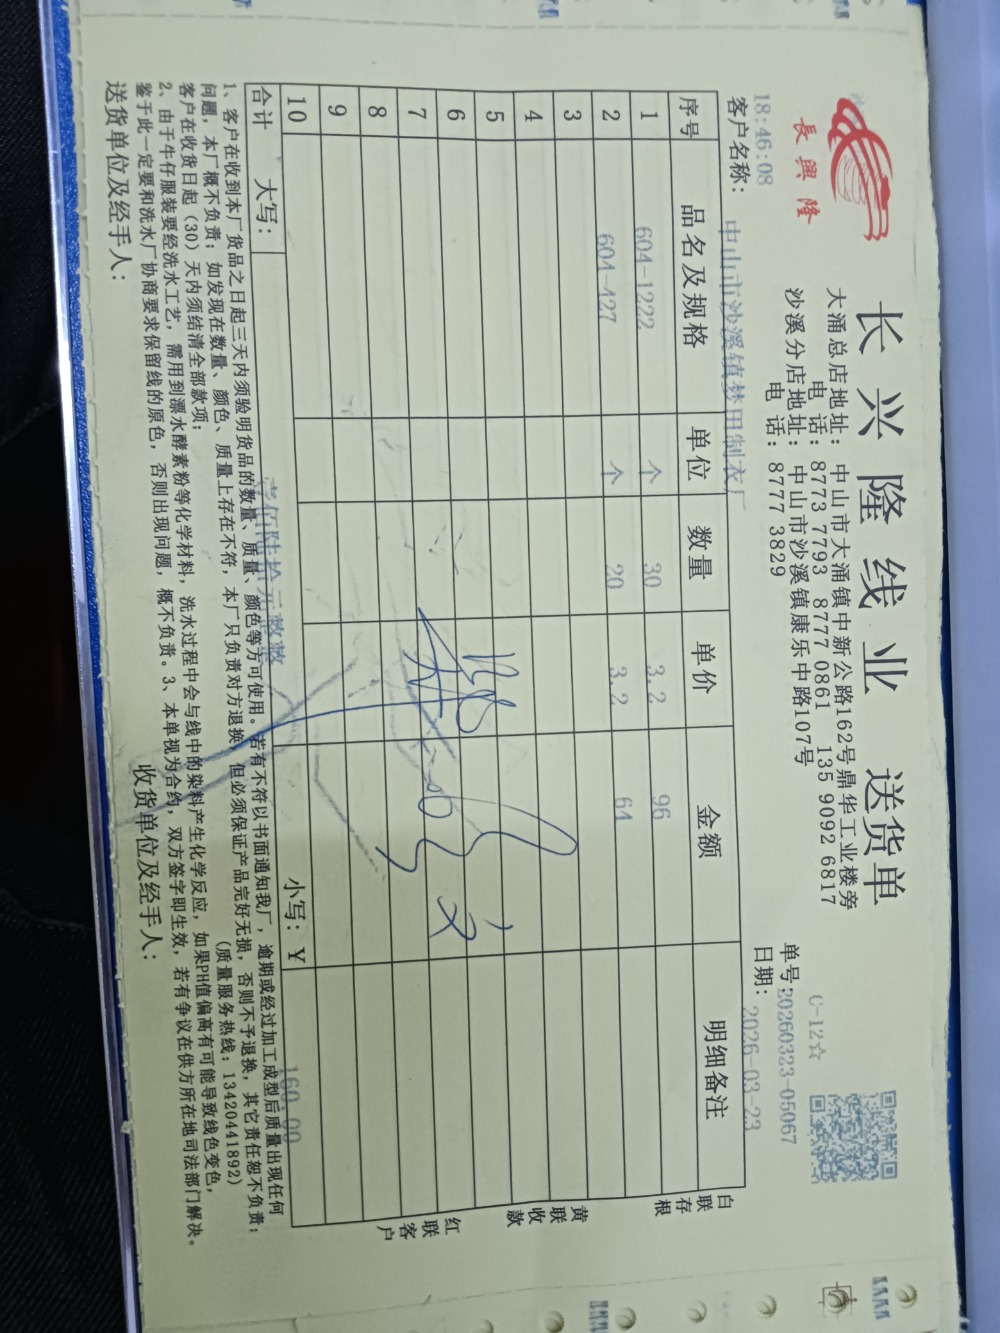 長興隆
长兴隆线业 送货单
大涌总店地址：中山市大涌镇中新公路162号鼎华工业楼旁
电话：8773 7793 8777 0861 135 9092 6817
沙溪分店地址：中山市沙溪镇康乐中路107号
电话：8777 3829
C-12☆
单号：20260323-05067
日期：2026-03-23
18:46:08
客户名称：中山市沙溪镇梦田制衣厂
序号 品名及规格 单位 数量 单价 金额 明细备注
1 604-1222 个 30 3.2 96
2 604-427 个 20 3.2 64
3
4
5
6
7
8
9
10
合计 大写：壹佰陆拾元整整 小写：¥ 160.00
白联存根
黄联收款
红联客户
1、客户在收到本厂货品之日起三天内须验明货品的数量、质量、颜色等方可使用。若有不符以书面通知我厂，逾期或经过加工成型后质量出现任何
问题，本厂概不负责；如发现在数量、颜色、质量上存在不符，本厂只负责对方退换，但必须保证产品完好无损，否则不予退换，其它责任恕不负责；
客户在收货日起（30）天内须结清全部款项； （质量服务热线：13420441892）
2、由于牛仔服装要经洗水工艺，需用到漂水酵素粉等化学材料，洗水过程中会与线中的染料产生化学反应，如果PH值偏高有可能导致线色变色，
鉴于此一定要和洗水厂协商要求保留线的原色，否则出现问题，概不负责。3、本单视为合约，双方签字即生效，若有争议在供方所在地司法部门解决。
送货单位及经手人： 收货单位及经手人：